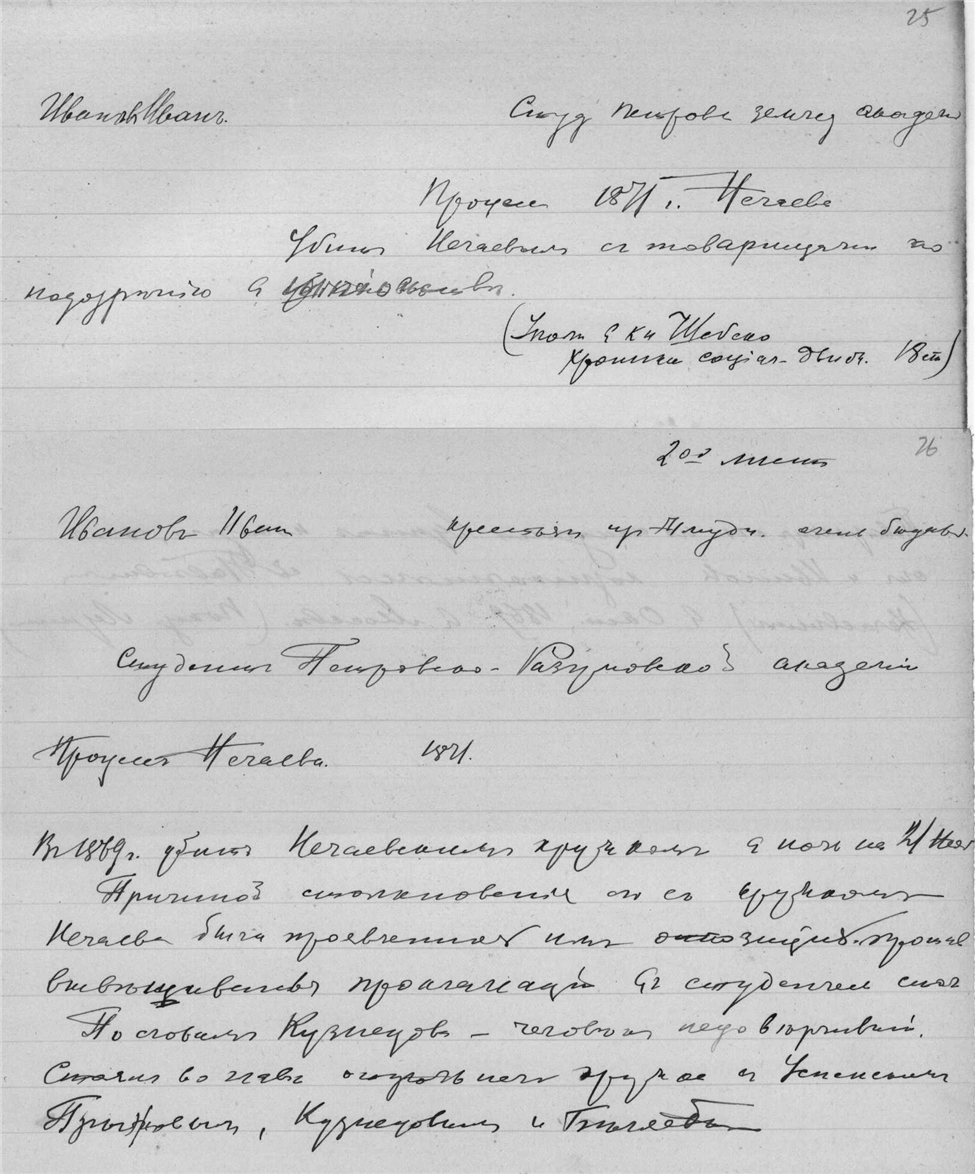 25
Ивановъ Иванъ. Студ Петров землед академ
Процесс 1871 г. Нечаева
Убитъ Нечаевымъ съ товарищами по
подозрѣнію въ
(Упом в кн Шебеко
Хроника соціал- движ. 18 ст)
26
2ой листъ
Ивановъ Иван крестьян. очень бѣдный.
Студентъ Петровско-Разумовской академіи
Процессъ Нечаева. 1871.
Въ 1869 г. убитъ Нечаевскимъ кружкомъ в ночь на 21 Нояб
Причиной столкновенія его съ кружкомъ
Нечаева была проявленная имъ оппозиція против
вывѣшиванья прокламацій въ студенчес столов
По словамъ Кузнецова - человѣкъ недовѣрчивый.
Стоялъ во главѣ отдѣльнаго кружка съ Успенскимъ
Прыжовымъ, Кузнецовымъ и Бѣляевой